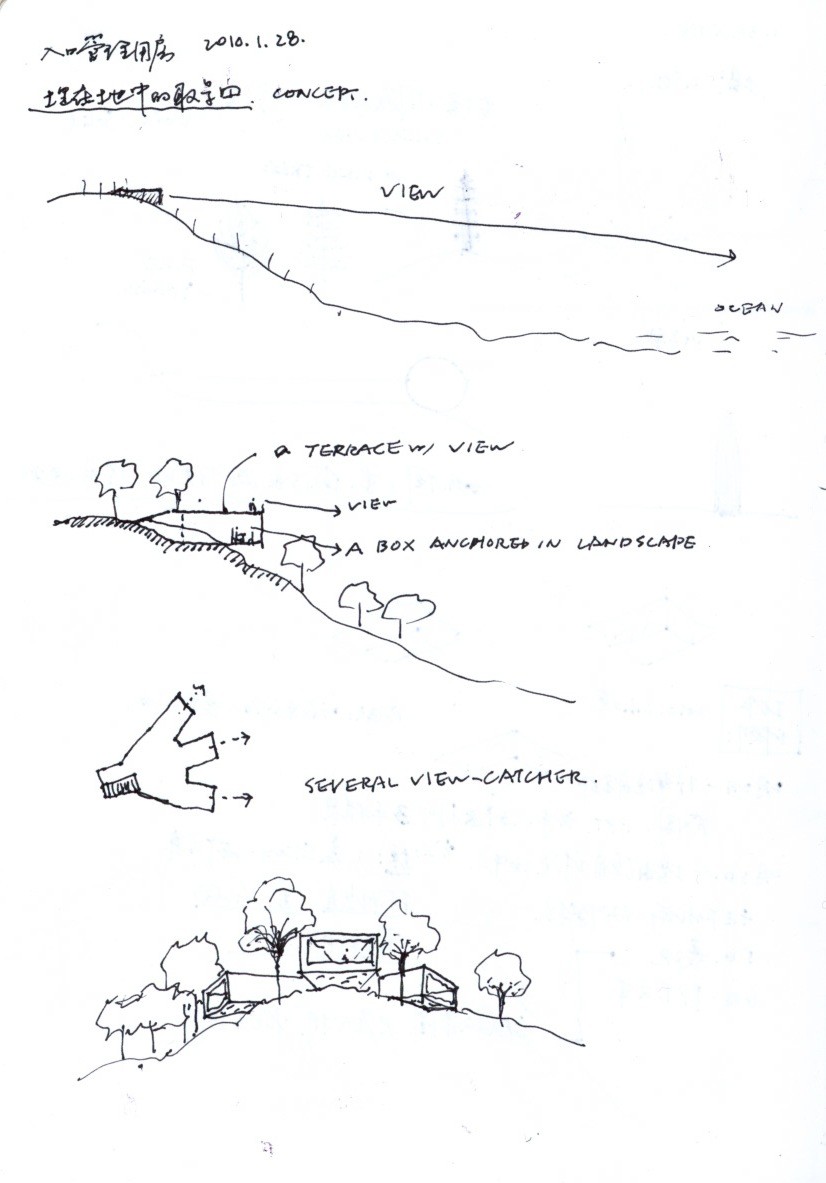 入口管理用房 2010.1.28.
埋在地中的取景口. CONCEPT.
VIEW
OCEAN
a TERRACE W/ VIEW
VIEW
A BOX ANCHORED IN LANDSCAPE
SEVERAL VIEW-CATCHER.